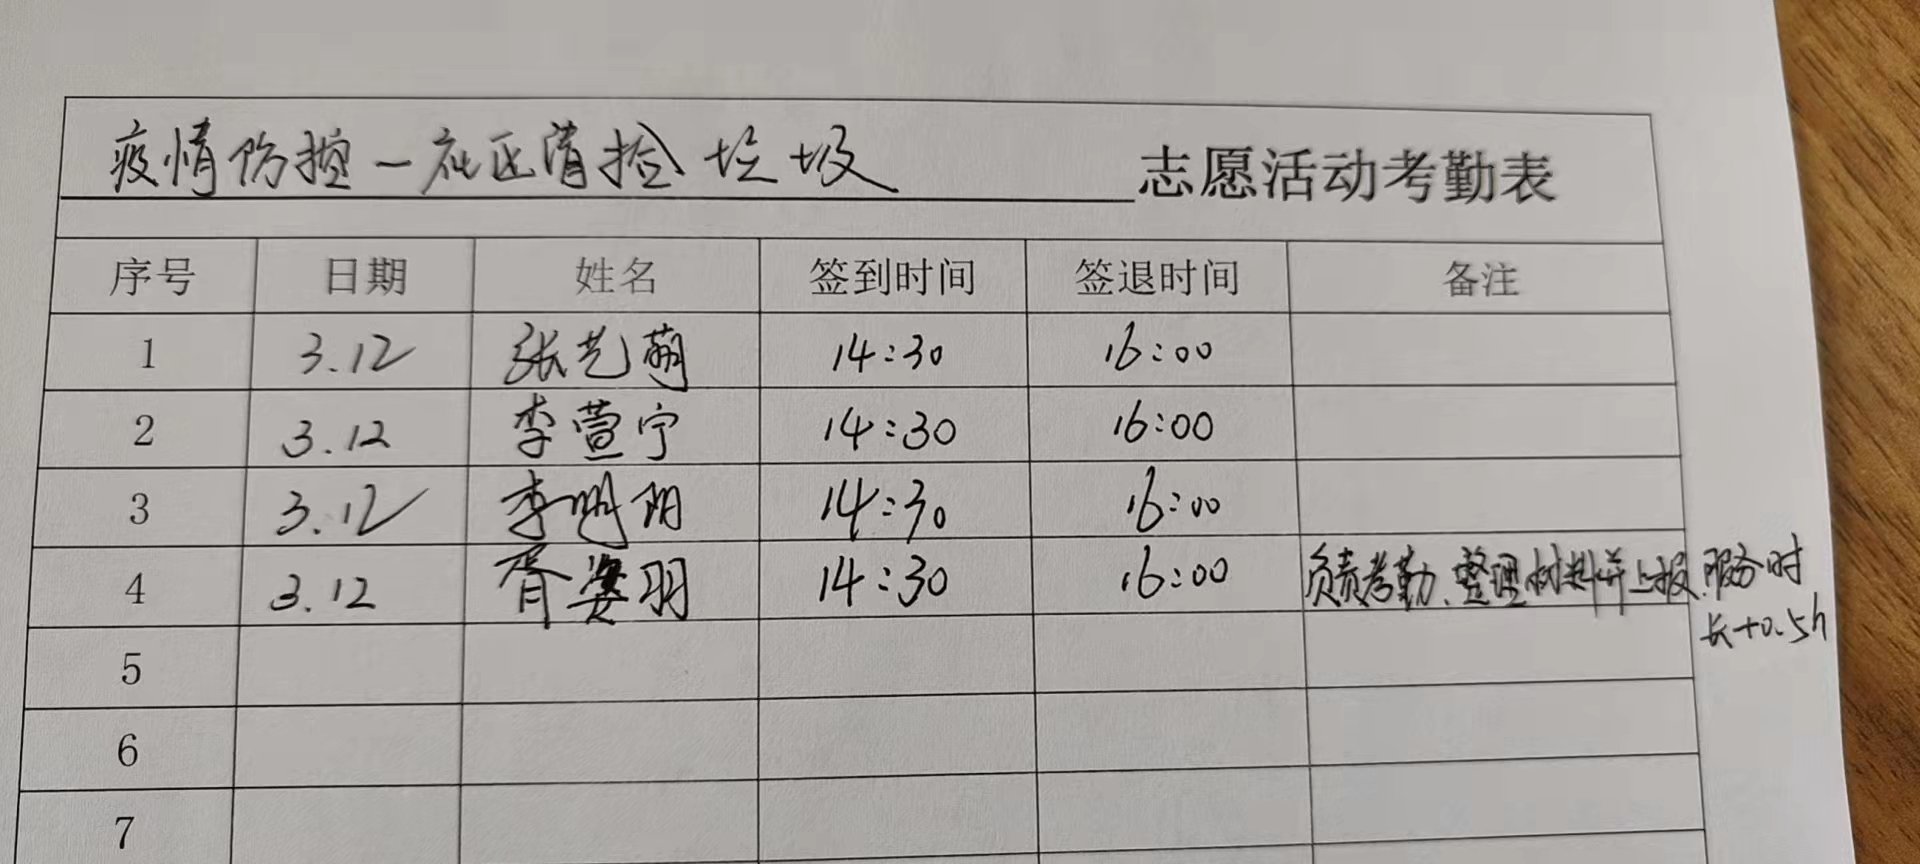 疫情防控－社区清捡垃圾 志愿活动考勤表
序号 日期 姓名 签到时间 签退时间 备注
1 3.12 张艺萌 14:30 16:00
2 3.12 李萱宁 14:30 16:00
3 3.12 李明阳 14:30 16:00
4 3.12 胥姿羽 14:30 16:00 负责考勤、整理材料并上报.服务时
长+0.5h
5
6
7